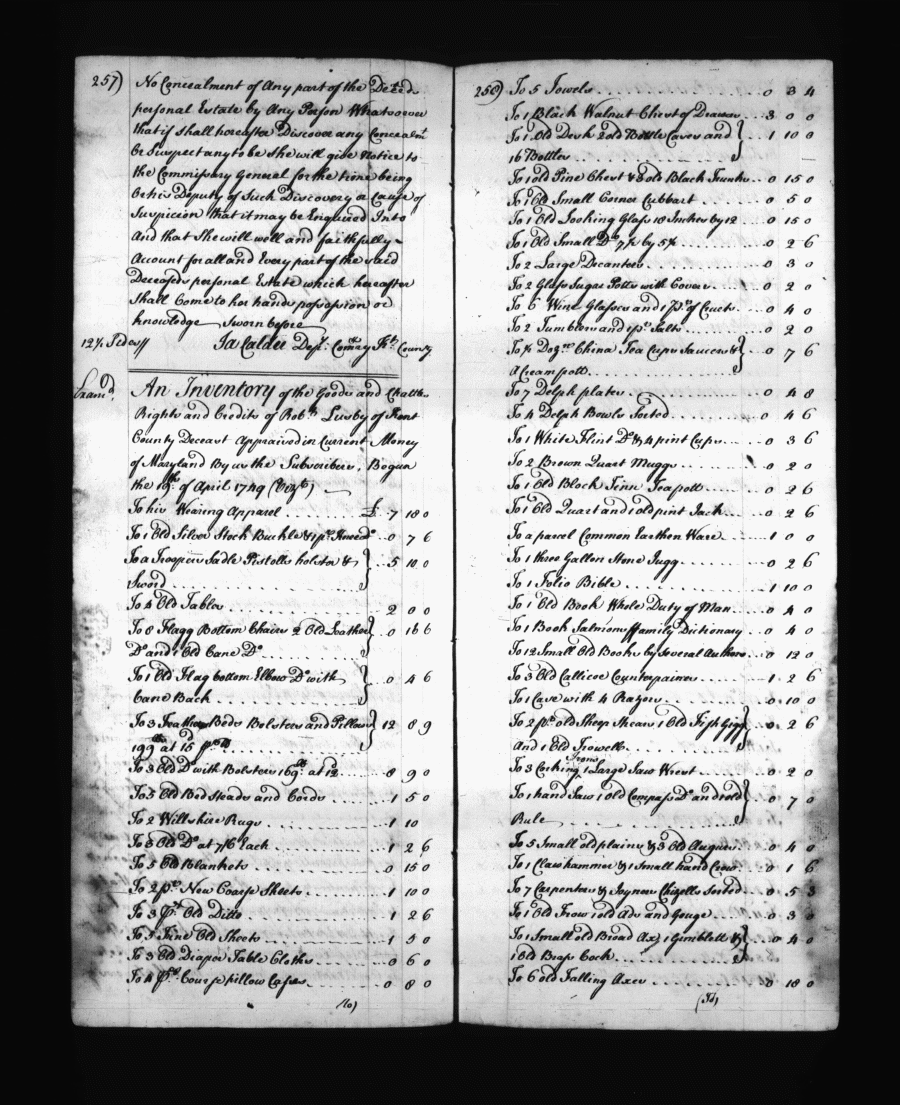 257)
No Concealment of Any part of the Deced.
personal Estate by Any Person Whatsoever
that if Shall hereafter Discover any Concealmt
Or Suspect any to be She will give Notice to
the Commissary General for the time being
Or his Deputy of Such Discovery or Cause of
Suspicion that it may be Enquired Into
And that She will well and faithfully
Account for all and Every part of the said
Deceaseds personal Estate which hereafter
Shall Come to her hands possession or
knowledge Sworn before
Ja Calder Depy. Comry Kt. County
12½ Sides //
Examd.
An Inventory of the Goods and Chattles
Rights and Credits of Robt. Lusby of Kent
County Deceast Appraised in Current Money
of Maryland By us the Subscribers. Begun
the 19th. of April 1749 (Vizt)
To his Wearing Apparel £ 7 18 0
To 1 Old Silver Stock Buckle & 1 pr. 0 7 6
To a Troopers Sadle Pistolls holster &
Sword 5 10 0
To 4 Old Tables 2 0 0
To 8 Flagg Bottom Chairs 2 Old Leather
Do and 1 Old Cane Do 0 16 6
To 1 Old Flag bottom Elbow Do with
Cane Back 0 4 6
To 3 Feather Beds Bolsters and Pillows
199 lb at 15 d pr lb 12 8 9
To 3 Old Do with Bolsters 169 lb. at 12 d 8 9 0
To 5 Old Bed Steads and Cords 1 5 0
To 2 Wiltshire Rugs 1 10
To 3 Old Do at 7/6 Each 1 2 6
To 5 Old Blankets 0 15 0
To 2 pr. New Coarse Sheets 1 10 0
To 3 pr. Old Ditto 1 2 6
To 5 Fine Old Sheets 1 5 0
To 3 Old Diaper Table Cloths 0 6 0
To 4 pr. Course pillow Cases 0 8 0
To)
258)
To 5 Towels 0 3 4
To 1 Black Walnut Chest of Drawers 3 0 0
To 1 Old Desk 2 old Bottle Cases and
16 Bottles 1 10 0
To 1 old Pine Chest & 3 old Black Trunks 0 15 0
To 1 Old Small Corner Cubbart 0 5 0
To 1 Old Looking Glass 18 Inches by 12 0 15 0
To 1 Old Small Do 7½ by 5½ 0 2 6
To 2 Large Decanters 0 3 0
To 2 Glass Sugar Potts with Covers 0 2 0
To 6 Wine Glasses and 1 pr. of Cruets 0 4 0
To 2 Tumblers and 1 pr. Salts 0 2 0
To ½ Dozn. China Tea Cups Saucers &
A Cream pott 0 7 6
To 7 Delph plates 0 4 8
To 4 Delph Bowls Sorted 0 4 6
To 1 White Flint Do & 4 pint Cups 0 3 6
To 2 Brown Quart Muggs 0 2 0
To 1 Old Block Tinn Teapott 0 2 6
To 1 Old Quart and 1 old pint Jack 0 2 6
To a parcel Common Earthen Ware 1 0 0
To 1 three Gallon Stone Jugg 0 2 6
To 1 Folio Bible 1 10 0
To 1 Old Book Whole Duty of Man 0 4 0
To 1 Book Salmons ffamily Dictionary 0 4 0
To 12 Small Old Books by Several Authors 0 12 0
To 3 Old Callicoe Counterpaines 1 2 6
To 1 Case with 4 Razors 0 10 0
To 2 pr. old Sheep Shears 1 Old Fish Gigg
And 1 Old Trowell 0 2 6
Irons
To 3 Corking 1 Large Saw Wrest 0 2 0
To 1 hand Saw 1 old Compass Do and 1 old
Rule 0 7 0
To 5 Small old plains & 3 Old Augurs 0 4 0
To 1 Claw hammer & 1 Small hand Crow 0 1 6
To 7 Carpenters & Joyners Chizells Sorted 0 5 3
To 1 Old Frow 1 old Ads and Gouge 0 3 0
To 1 Small old Broad Ax, 1 Gimblett &
1 Old Brass Cock 0 4 0
To 6 old Falling Axes 0 18 0
(To)